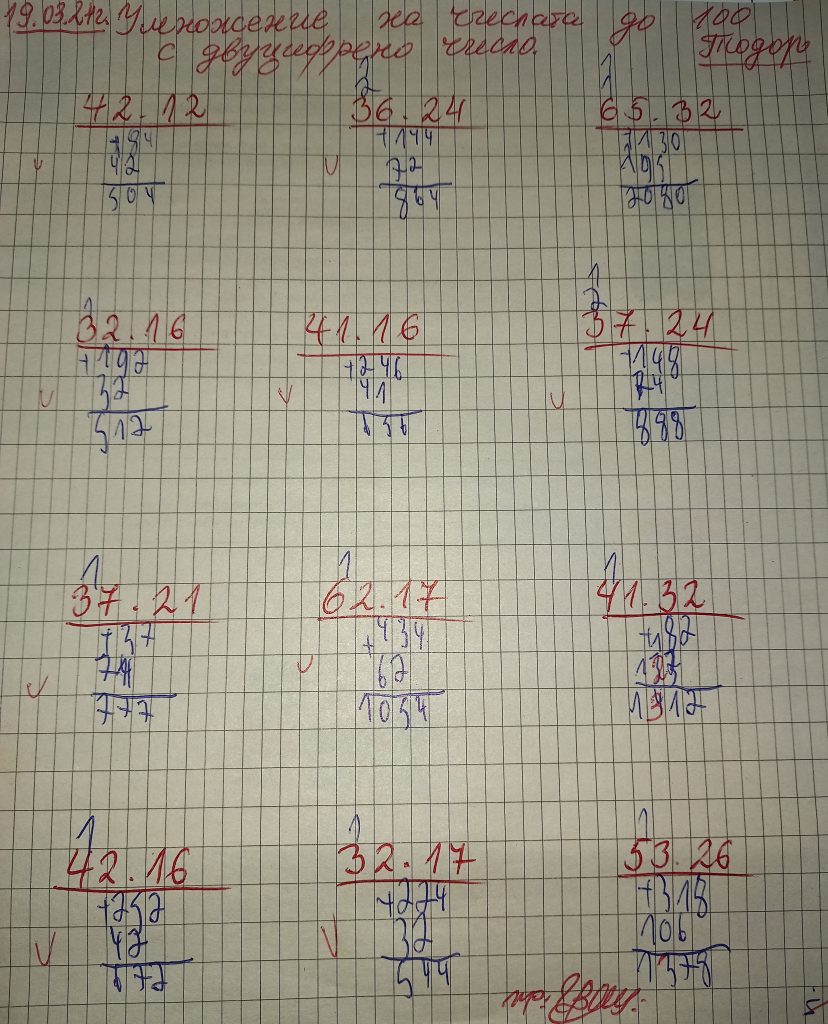 19.03.24г. Умножение на числата до 100
с двуцифрено число. Тодор
2
42.12 36.24 65.32
+84 +144 +130
42 72 195
504 864 2080
1
1 2
32.16 41.16 37.24
+192 +246 +148
32 41 74
512 656 888
1 1 1
37.21 62.17 41.32
+37 +434 +82
74 62 123
777 1054 1312
1 1 1
42.16 32.17 53.26
+252 +224 +318
42 32 106
672 544 1378